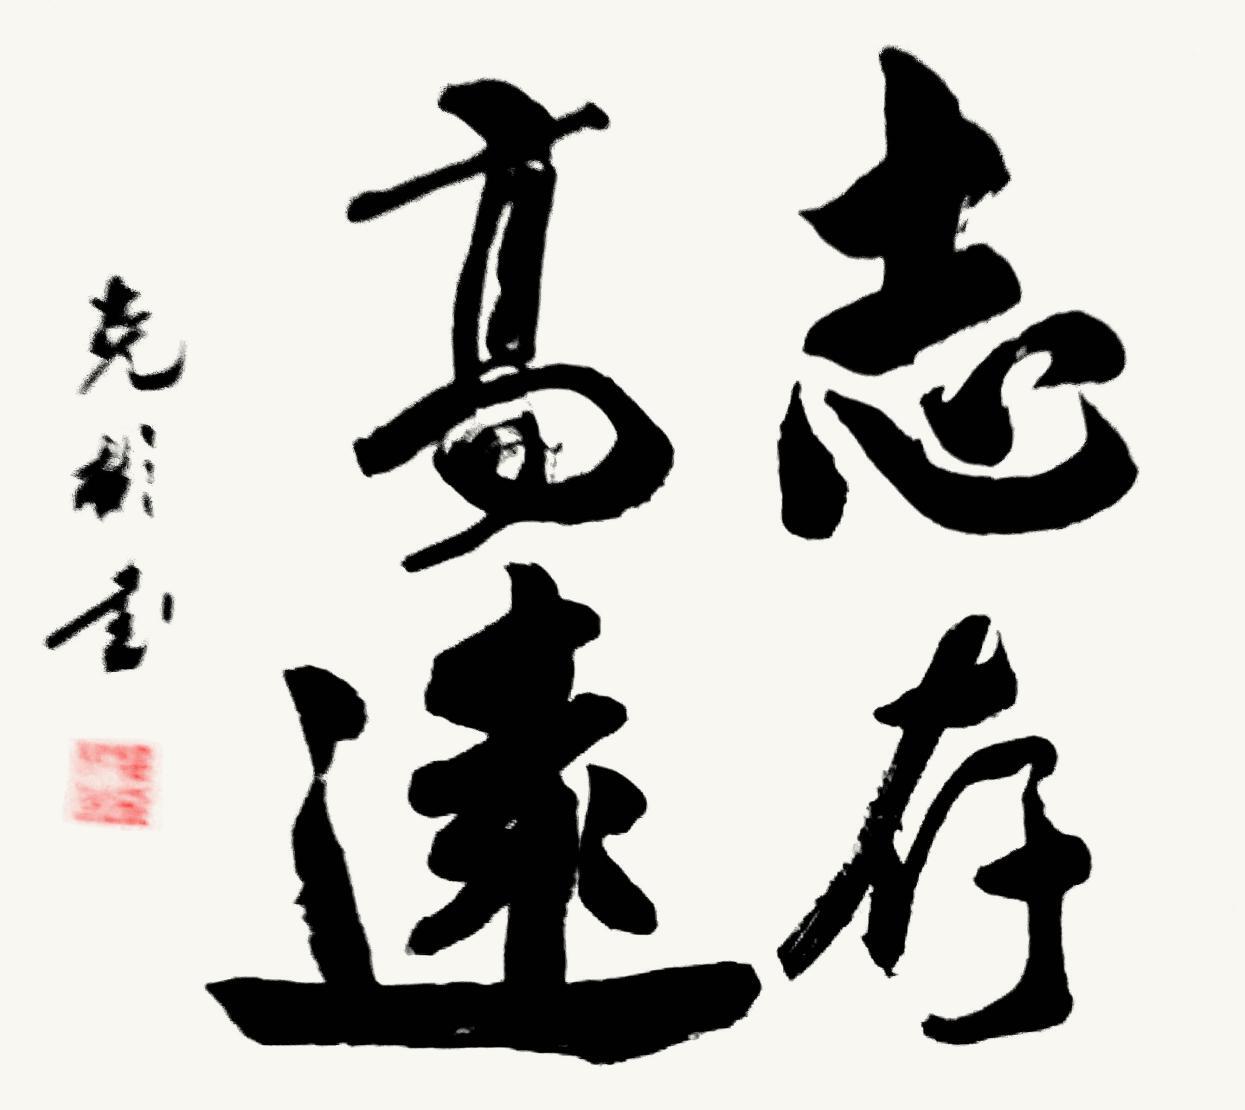 志存
高遠
克彬書